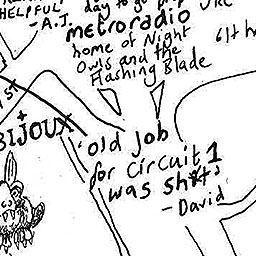 HELPFUL"
- A.J.
day to go
metroradio
home of Night
Owls and the
Flashing Blade
6th
BIJOUX
'old job
for circuit 1
was sh*t'
- David